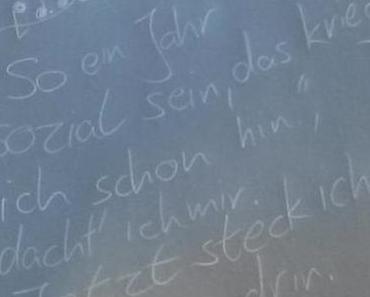 So ein Jahr
sozial sein, das krieg
ich schon hin",
dacht' ich mir.
Jetzt steck ich
drin.